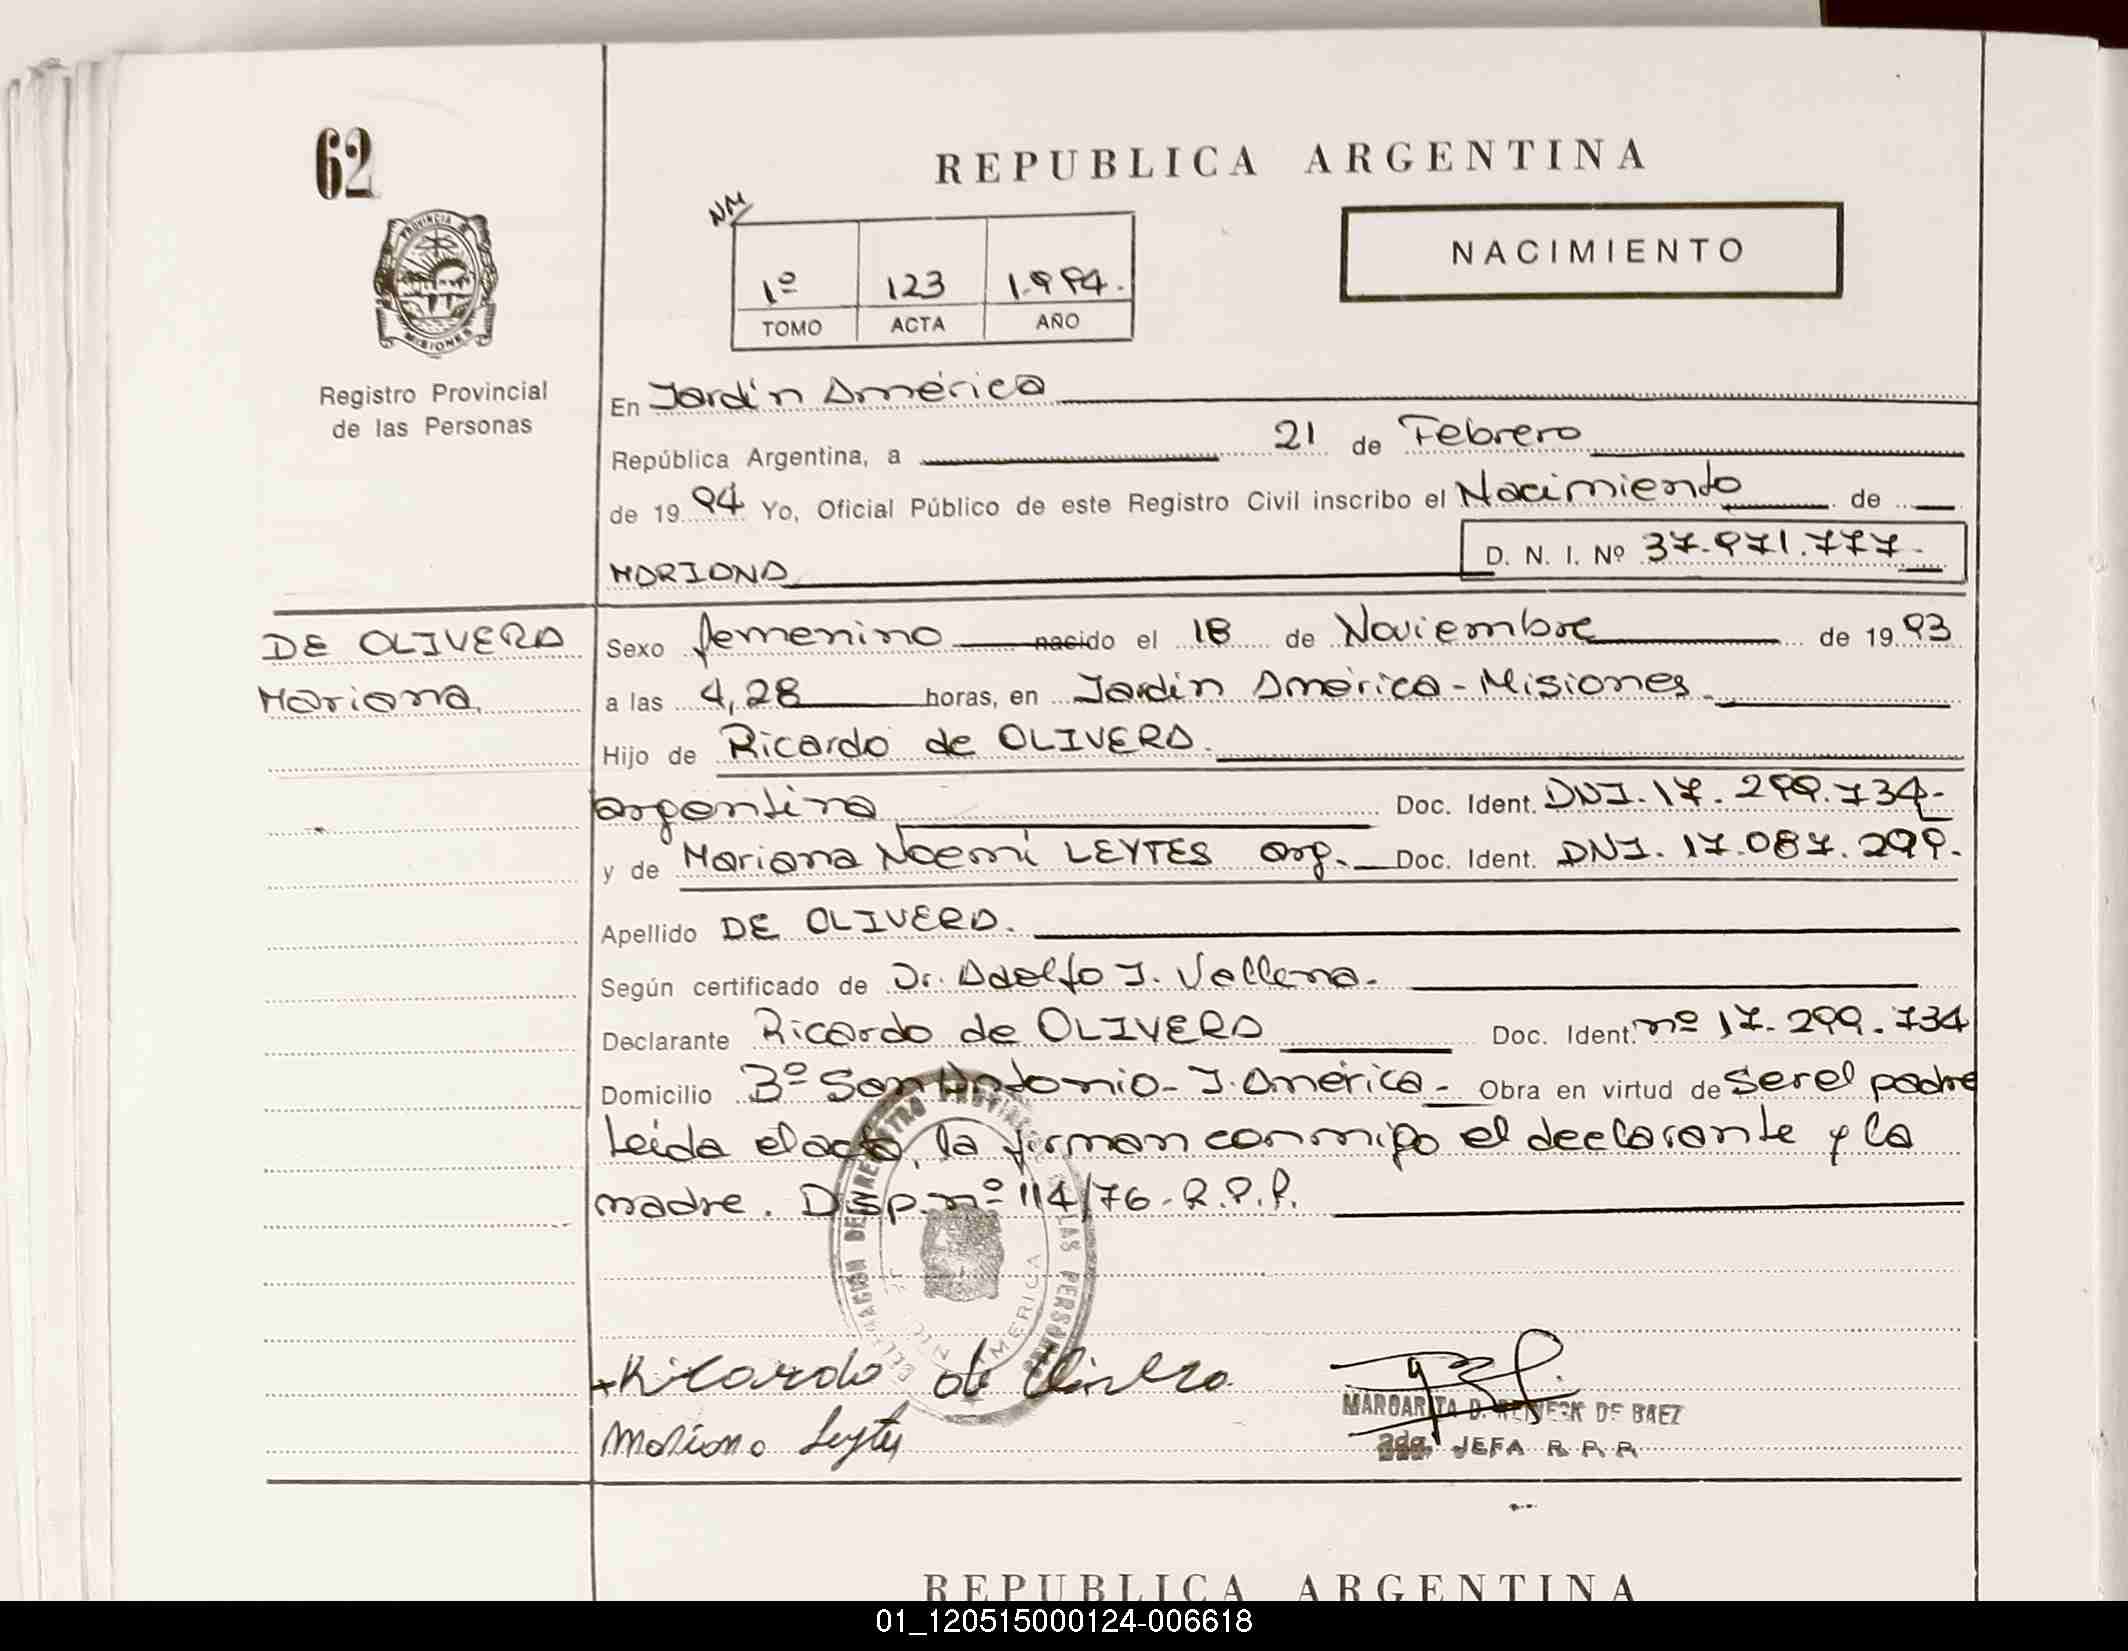 62
PROVINCIA
MISIONES
Registro Provincial
de las Personas
REPUBLICA ARGENTINA
NM
1º 123 1.994.
TOMO ACTA AÑO
NACIMIENTO
En Jardín América
República Argentina, a 21 de Febrero
de 19 94 Yo, Oficial Público de este Registro Civil inscribo el Nacimiento de
MARIANA D. N. I. Nº 37.971.777-
DE OLIVERA
Mariana
Sexo femenino nacido el 18 de Noviembre de 19 93
a las 4,28 horas, en Jardín América - Misiones
Hijo de Ricardo de OLIVERA.
argentina Doc. Ident. DNI. 17.299.734-
y de Mariana Noemí LEYTES arg. Doc. Ident. DNI. 17.087.299.
Apellido DE OLIVERA.
Según certificado de Dr. Adolfo J. Vallena.
Declarante Ricardo de OLIVERA Doc. Ident. nº 17.299.734
Domicilio Bº San Antonio - J. América - Obra en virtud de ser el padre
Leída el acta, la firman conmigo el declarante y la
madre. Disp. nº 114/76 - R.P.P.
DELEGACION DEL REGISTRO PROVINCIAL DE LAS PERSONAS
AMERICA
Ricardo de Olivera
Mariana Leytes
MARGARITA D. DE BAEZ
JEFA R. P. P.
REPUBLICA ARGENTINA
01_120515000124-006618